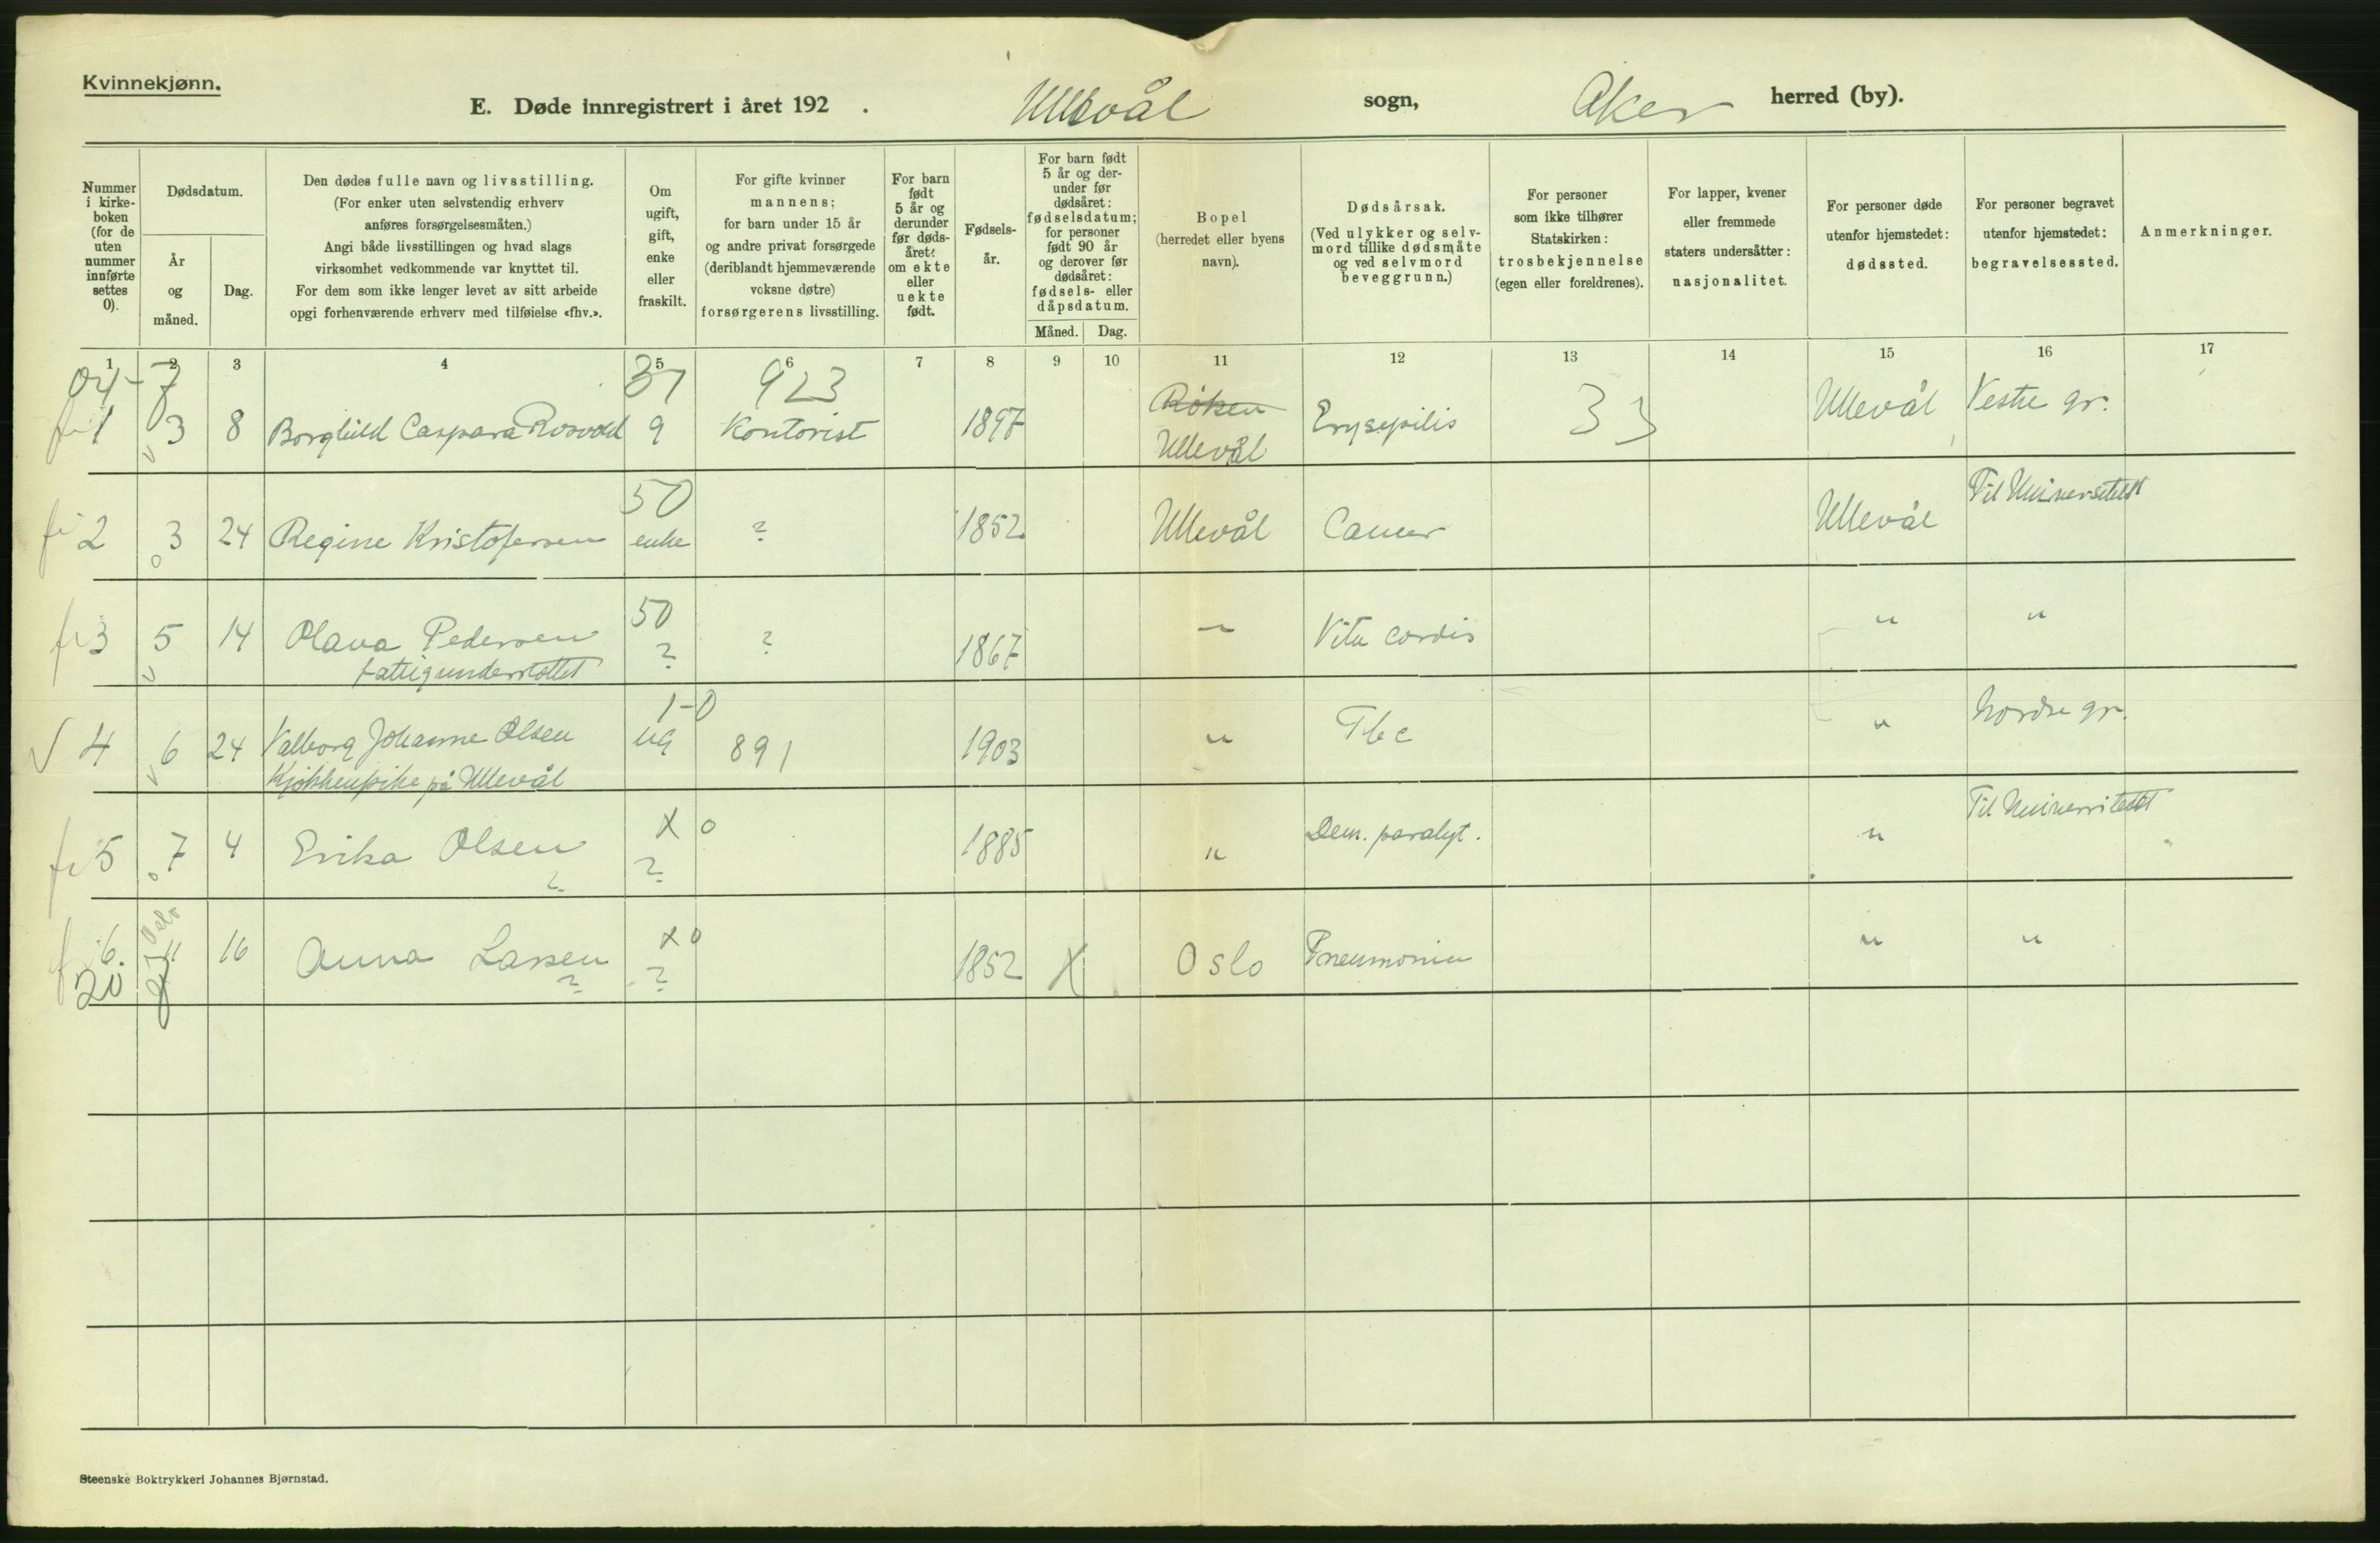 Kvinnekjønn.
E. Døde innregistrert i året 192 . Ullevål sogn, Aker herred (by).
Nummer i kirke-boken (for de uten nummer innførte settes 0).
Dødsdatum.
År og måned.
Dag.
Den dødes fulle navn og livsstilling.
(For enker uten selvstendig erhverv
anføres forsørgelsesmåten.)
Angi både livsstillingen og hvad slags
virksomhet vedkommende var knyttet til.
For dem som ikke lenger levet av sitt arbeide
opgi forhenværende erhverv med tilføielse «fhv.».
Om ugift, gift, enke eller fraskilt.
For gifte kvinner
mannens;
for barn under 15 år
og andre privat forsørgede
(deriblandt hjemmeværende
voksne døtre)
forsørgerens livsstilling.
For barn født 5 år og derunder før døds-året: om ekte eller uekte født.
Fødsels-år.
For barn født 5 år og der-under før dødsåret: fødselsdatum; for personer født 90 år og derover før dødsåret: fødsels- eller dåpsdatum.
Måned. Dag.
Bopel
(herredet eller byens
navn).
Dødsårsak.
(Ved ulykker og selv-
mord tillike dødsmåte
og ved selvmord
beveggrunn.)
For personer
som ikke tilhører
Statskirken:
trosbekjennelse
(egen eller foreldrenes).
For lapper, kvener
eller fremmede
staters undersåtter:
nasjonalitet.
For personer døde
utenfor hjemstedet:
dødssted.
For personer begravet
utenfor hjemstedet:
begravelsessted.
Anmerkninger.
1 2 3 4 5 6 7 8 9 10 11 12 13 14 15 16 17
04-7 37 923
Røken
1 3 8 Borghild Caspara Rosvold 9 Kontorist 1897 Ullevål Erysepilis 33 Ullevål Vestre gr.
50
2 3 24 Regine Kristofersen enke ? 1852 Ullevål Cancer Ullevål Til Universitetet
50
3 5 14 Olava Pedersen ? ? 1867 " Vitu cordis " "
Fattigunderstøttet
1-0
4 6 24 Valborg Johanne Olsen ug 891 1903 " Tbc " Nordre gr.
Kjøkkenpike på Ullevål
X 0
5 7 4 Erika Olsen ? ? 1885 " Dem. paralyt. " Til Universitetet
Oslo
X 0
6. 11 16 Anna Larsen ? ? 1852 X Oslo Pneumonia " "
20
Steenske Boktrykkeri Johannes Bjørnstad.